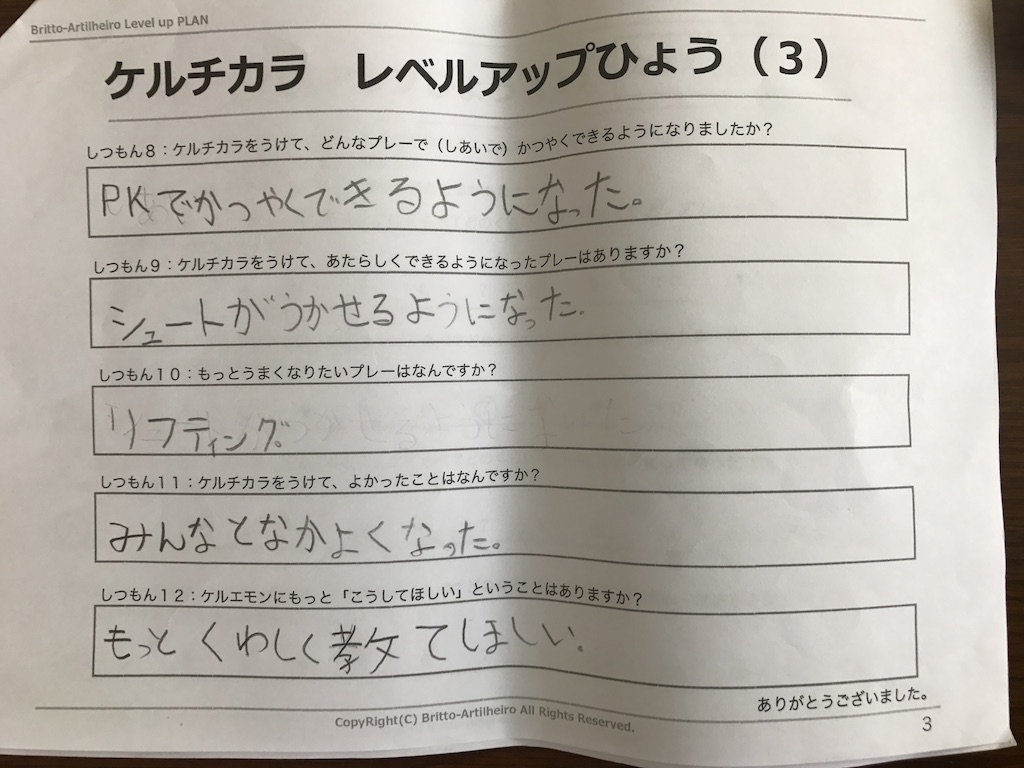 Britto-Artilheiro Level up PLAN
ケルチカラ　レベルアップひょう（3）
しつもん8：ケルチカラをうけて、どんなプレーで（しあいで）かつやくできるようになりましたか？
PKでかつやくできるようになった。
しつもん9：ケルチカラをうけて、あたらしくできるようになったプレーはありますか？
シュートがうかせるようになった.
しつもん10：もっとうまくなりたいプレーはなんですか？
リフティング
しつもん11：ケルチカラをうけて、よかったことはなんですか？
みんなとなかよくなった。
しつもん12：ケルエモンにもっと「こうしてほしい」ということはありますか？
もっとくわしく教てほしい。
ありがとうございました。
CopyRight(C) Britto-Artilheiro All Rights Reserved.
3